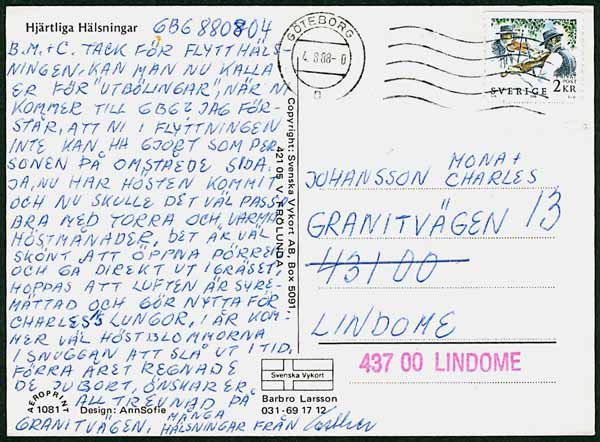 Hjärtliga Hälsningar
GBG 880804
B.M.+C. TACK FÖR FLYTTHÄLS
NINGEN, KAN MAN NU KALLA
ER FÖR "UTBÖLINGAR", NÄR NI
KOMMER TILL GBG? JAG FÖR-
STÅR, ATT NI I FLYTTNINGEN
INTE KAN HA GJORT SOM PER
SONEN PÅ OMSTÅENDE SIDA.
JA, NU HAR HÖSTEN KOMMIT
OCH NU SKULLE DET VÄL PASSA
BRA MED TORRA OCH VARMA
HÖSTMÅNADER, DET ÄR VÄL
SKÖNT ATT ÖPPNA DÖRREN
OCH GÅ DIREKT UT I GRÄSET,
HOPPAS ATT LUFTEN ÄR SYRE-
MÄTTAD OCH GÖR NYTTA FÖR
CHARLES'S LUNGOR, I ÅR KOM-
MER VÄL HÖSTBLOMMORNA
I SNUGGAN ATT SLÅ UT I TID.
FÖRRA ÅRET REGNADE
DE JU BORT, ÖNSKAR ER
ALL TREVNAD PÅ
GRANITVÄGEN, MÅNGA
HÄLSNINGAR FRÅN
AEROPRINT
A 1081
Design: AnnSofie
Copyright: Svenska Vykort AB, Box 5091,
421 05 V. FRÖLUNDA
Svenska Vykort
Barbro Larsson
031-69 17 12
GÖTEBORG
4.8.88-0
SVERIGE 2 KR
MONA +
JOHANSSON CHARLES
GRANITVÄGEN 13
43100
LINDOME
437 00 LINDOME